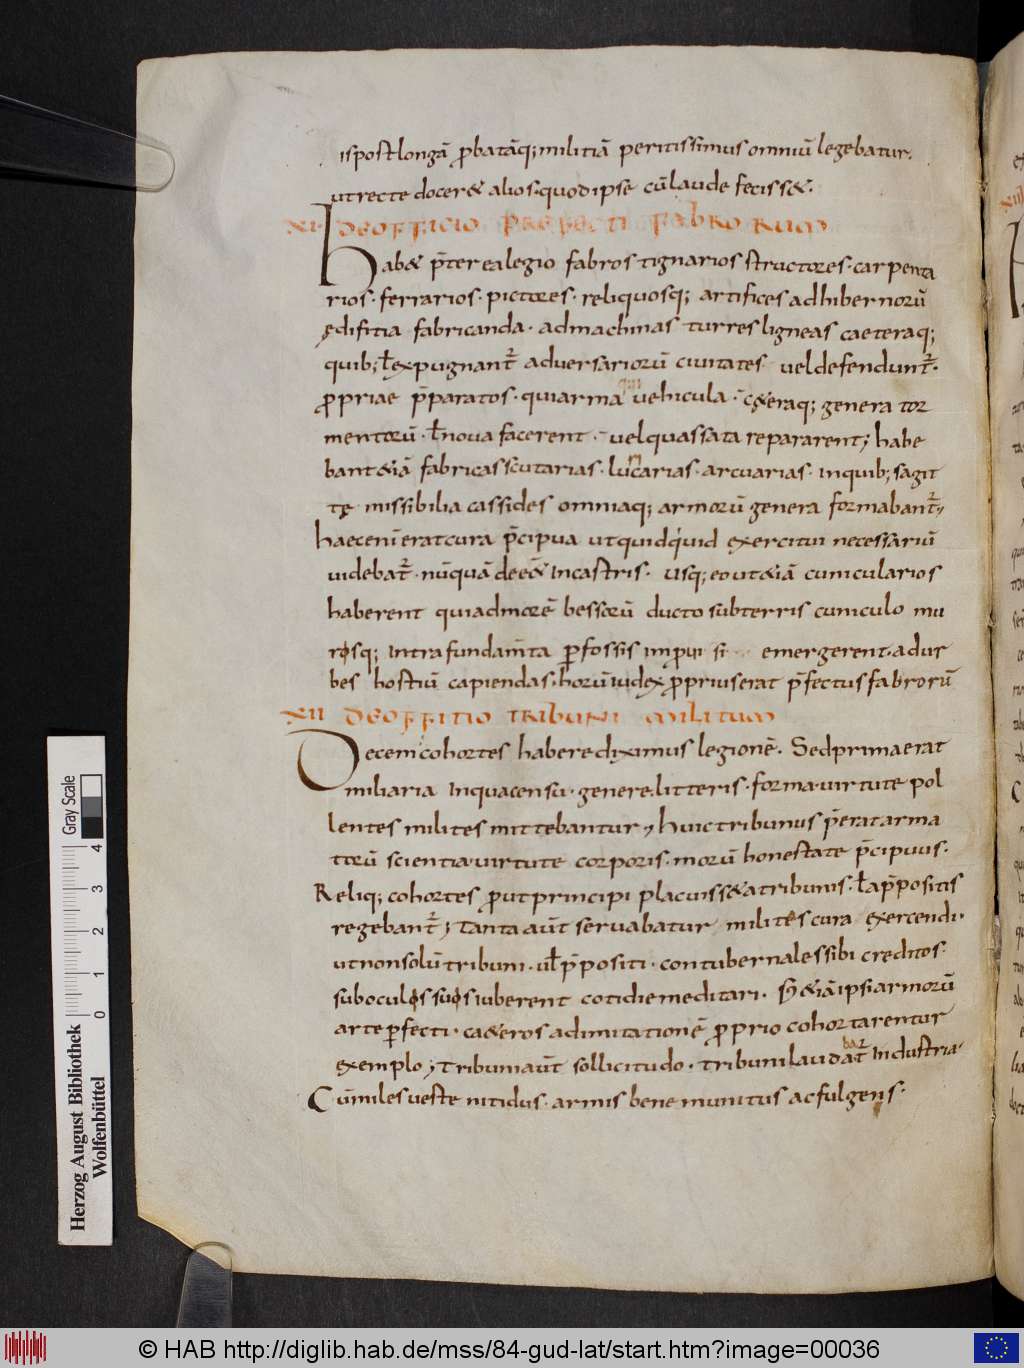 is post longā ꝓbatāq; militiā peritissimus omniū legebatur.
ut recte docer& alios. quod ipse cū laude feciss&.
XI DE OFFICIO PREFECTI FABRORUM
Hab& p̄terea legio fabros tignarios structores. carpenta
rios. ferrarios. pictores. reliquosq; artifices ad hibernorū
ędifitia fabricanda. ad machinas turres ligneas caeteraq;
quib; ł expugnant̄ adversariorū civitates vel defendunt̄.
ꝓpriae p̄paratos. qui arma vehicula. c&eraq; genera tor
mentorū. ł nova facerent. vel quassata repararent; habe
bant &iā fabricas scutarias. luricarias. arcuarias. in quib; sagit
tę missibilia cassides omniaq; armorū genera formabant̄,
haec eni erat cura p̄cipua ut quidquid exercitui necessariū
videbat̄. nūquā deeē& in castris. usq; eo ut &iā cunicularios
haberent qui ad morē bessorū ducto sub terris cuniculo mu
rosq; intra fundam̄ta ꝑfossis improvisi emergerent. ad ur
bes hostiū capiendas. horū iudex ꝓprius erat p̄fectus fabrorū
XII DE OFFITIO TRIBUNI MILITUM
Decem cohortes habere diximus legionē. Sed prima erat
miliaria in qua censu. genere. litteris. forma. virtute pol
lentes milites mittebantur, huic tribunus p̄erat arma
torū scientia. virtute corporis. morū honestate p̄cipuus.
Reliq; cohortes ꝓut principi placuiss& a tribunis. ł a p̄positis
regebant̄; Tanta aūt servabatur militēs cura exercendi.
ut non solū tribuni. uł p̄positi. contubernales sibi creditos.
sub oculos suos iuberent cotidie meditari. S; &iā ipsi armorū
arte ꝑfecti. ca&eros ad imitationē ꝓprio cohortarentur
exemplo; Tribuni aūt sollicitudo. tribuni laudat̄ industria.
Cū miles veste nitidus. armis bene munitus ac fulgens.
Herzog August Bibliothek
Wolfenbüttel
0 1 2 3 4
Gray Scale
© HAB http://diglib.hab.de/mss/84-gud-lat/start.htm?image=00036